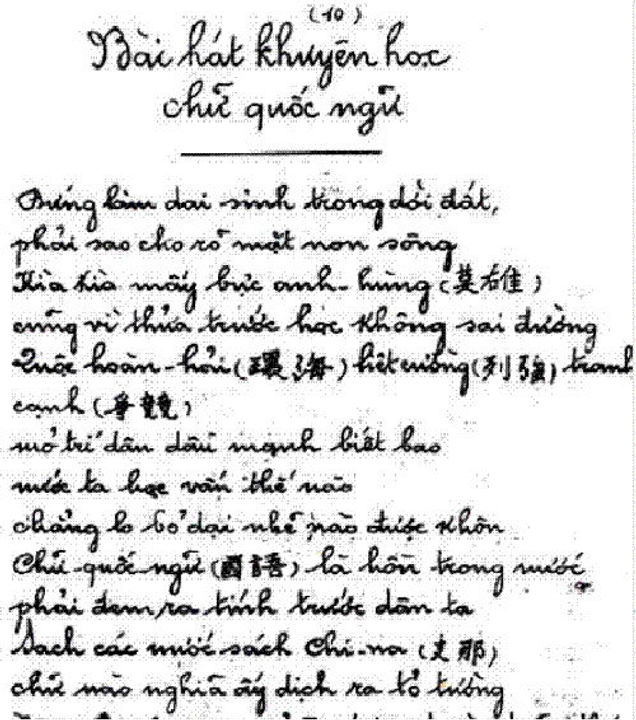 (10)
Bài hát khuyên học
chữ quốc ngữ
Đứng làm dai sinh trong dời đất,
phải sao cho rõ mặt non sông
Kia kia mấy bực anh-hùng (英雄)
cũng vì thủa trước học không sai đường
Cuộc hoàn-hải (環海) liệt cường (列強) tranh
cạnh (爭競)
mở trí dân dầu mạnh biết bao
nước ta học vấn thế nào
chẳng lo bỏ dại nhẽ nào được khôn
Chữ quốc ngữ (國語) là hồn trong nước
phải đem ra tính trước dân ta
Sach các nước sách Chi-na (支那)
chữ nào nghĩa ấy dịch ra tỏ tường